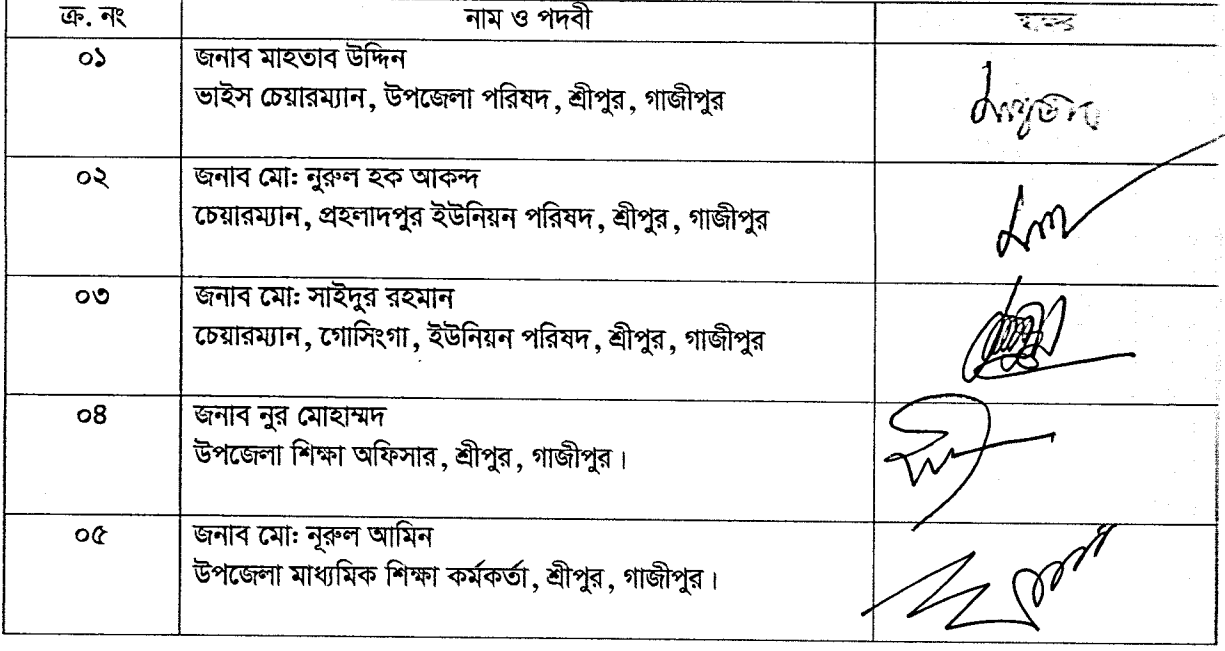 ক্র. নং নাম ও পদবী
০১ জনাব মাহতাব উদ্দিন
ভাইস চেয়ারম্যান, উপজেলা পরিষদ, শ্রীপুর, গাজীপুর
০২ জনাব মো: নুরুল হক আকন্দ
চেয়ারম্যান, প্রহলাদপুর ইউনিয়ন পরিষদ, শ্রীপুর, গাজীপুর
০৩ জনাব মো: সাইদুর রহমান
চেয়ারম্যান, গোসিংগা, ইউনিয়ন পরিষদ, শ্রীপুর, গাজীপুর
০৪ জনাব নুর মোহাম্মদ
উপজেলা শিক্ষা অফিসার, শ্রীপুর, গাজীপুর।
০৫ জনাব মো: নূরুল আমিন
উপজেলা মাধ্যমিক শিক্ষা কর্মকর্তা, শ্রীপুর, গাজীপুর।